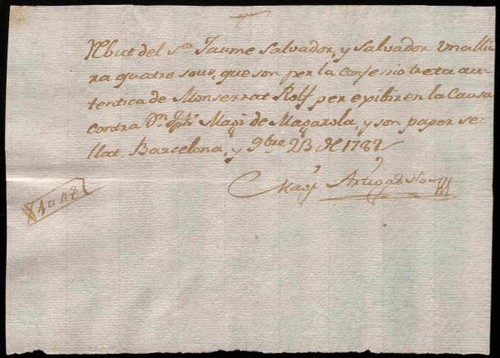 Rebut del Sr. Jaume Salvador, y Salvador una lliu
ra quatre sous, que son per la Confessio treta au
tentica de Monserrat Rolf per exibir en la Causa
contra Dn. Magi de Magarola, y son paper se
llat. Barcelona, y 9bre 23 de 1787
Magi Artigas Not